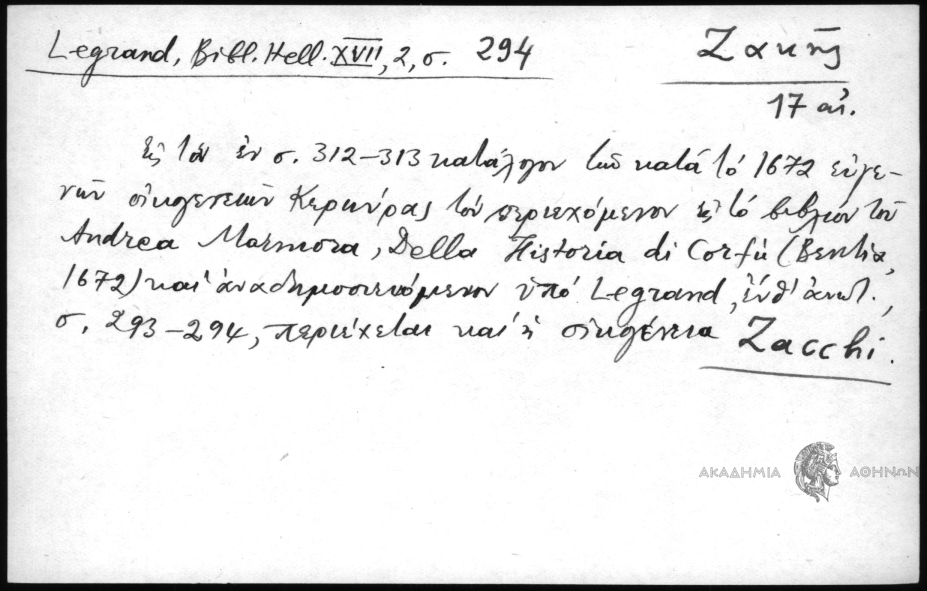 Legrand, Bibl. Hell. XVII, 2, σ. 294
Ζακῆς
17 αἰ.
Εἰς τὸν ἐν σ. 312–313 κατάλογον τῶν κατὰ τὸ 1672 εὐγε-
νῶν οἰκογενειῶν Κερκύρας τὸν περιεχόμενον εἰς τὸ βιβλίον τοῦ
Andrea Marmora, Della Historia di Corfù (Βενετία,
1672) καὶ ἀναδημοσιευόμενον ὑπὸ Legrand, ἔνθ' ἀνωτ.,
σ. 293–294, περιέχεται καὶ ἡ οἰκογένεια Zacchi.
ΑΚΑΔΗΜΙΑ ΑΘΗΝΩΝ